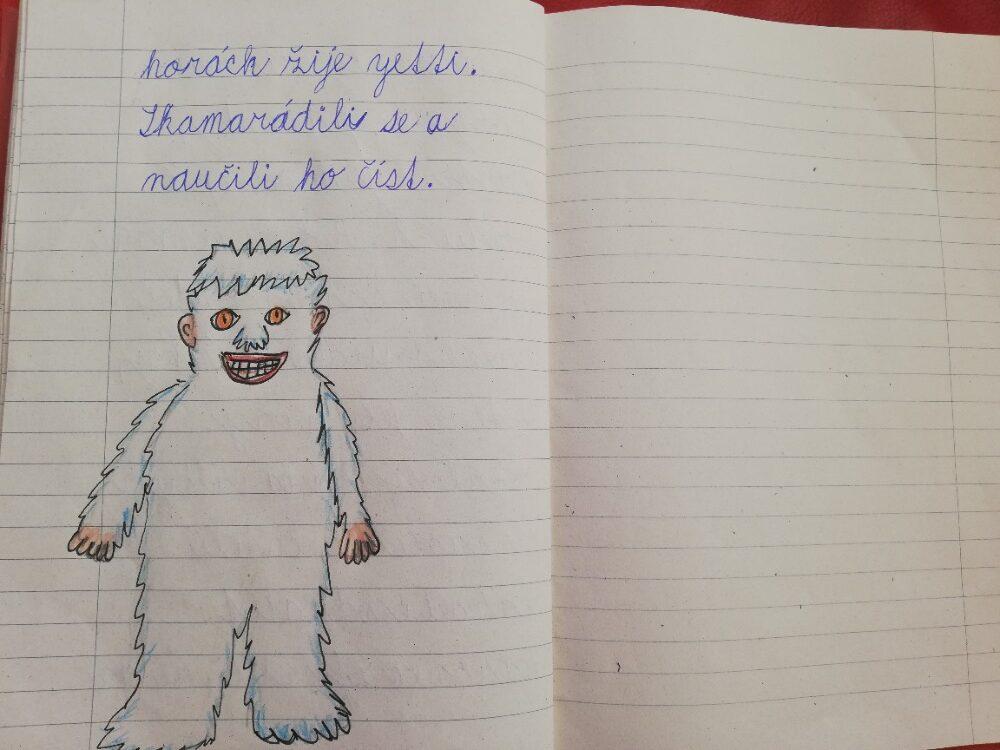 horách žije yetti.
Skamarádili se a
naučili ho číst.